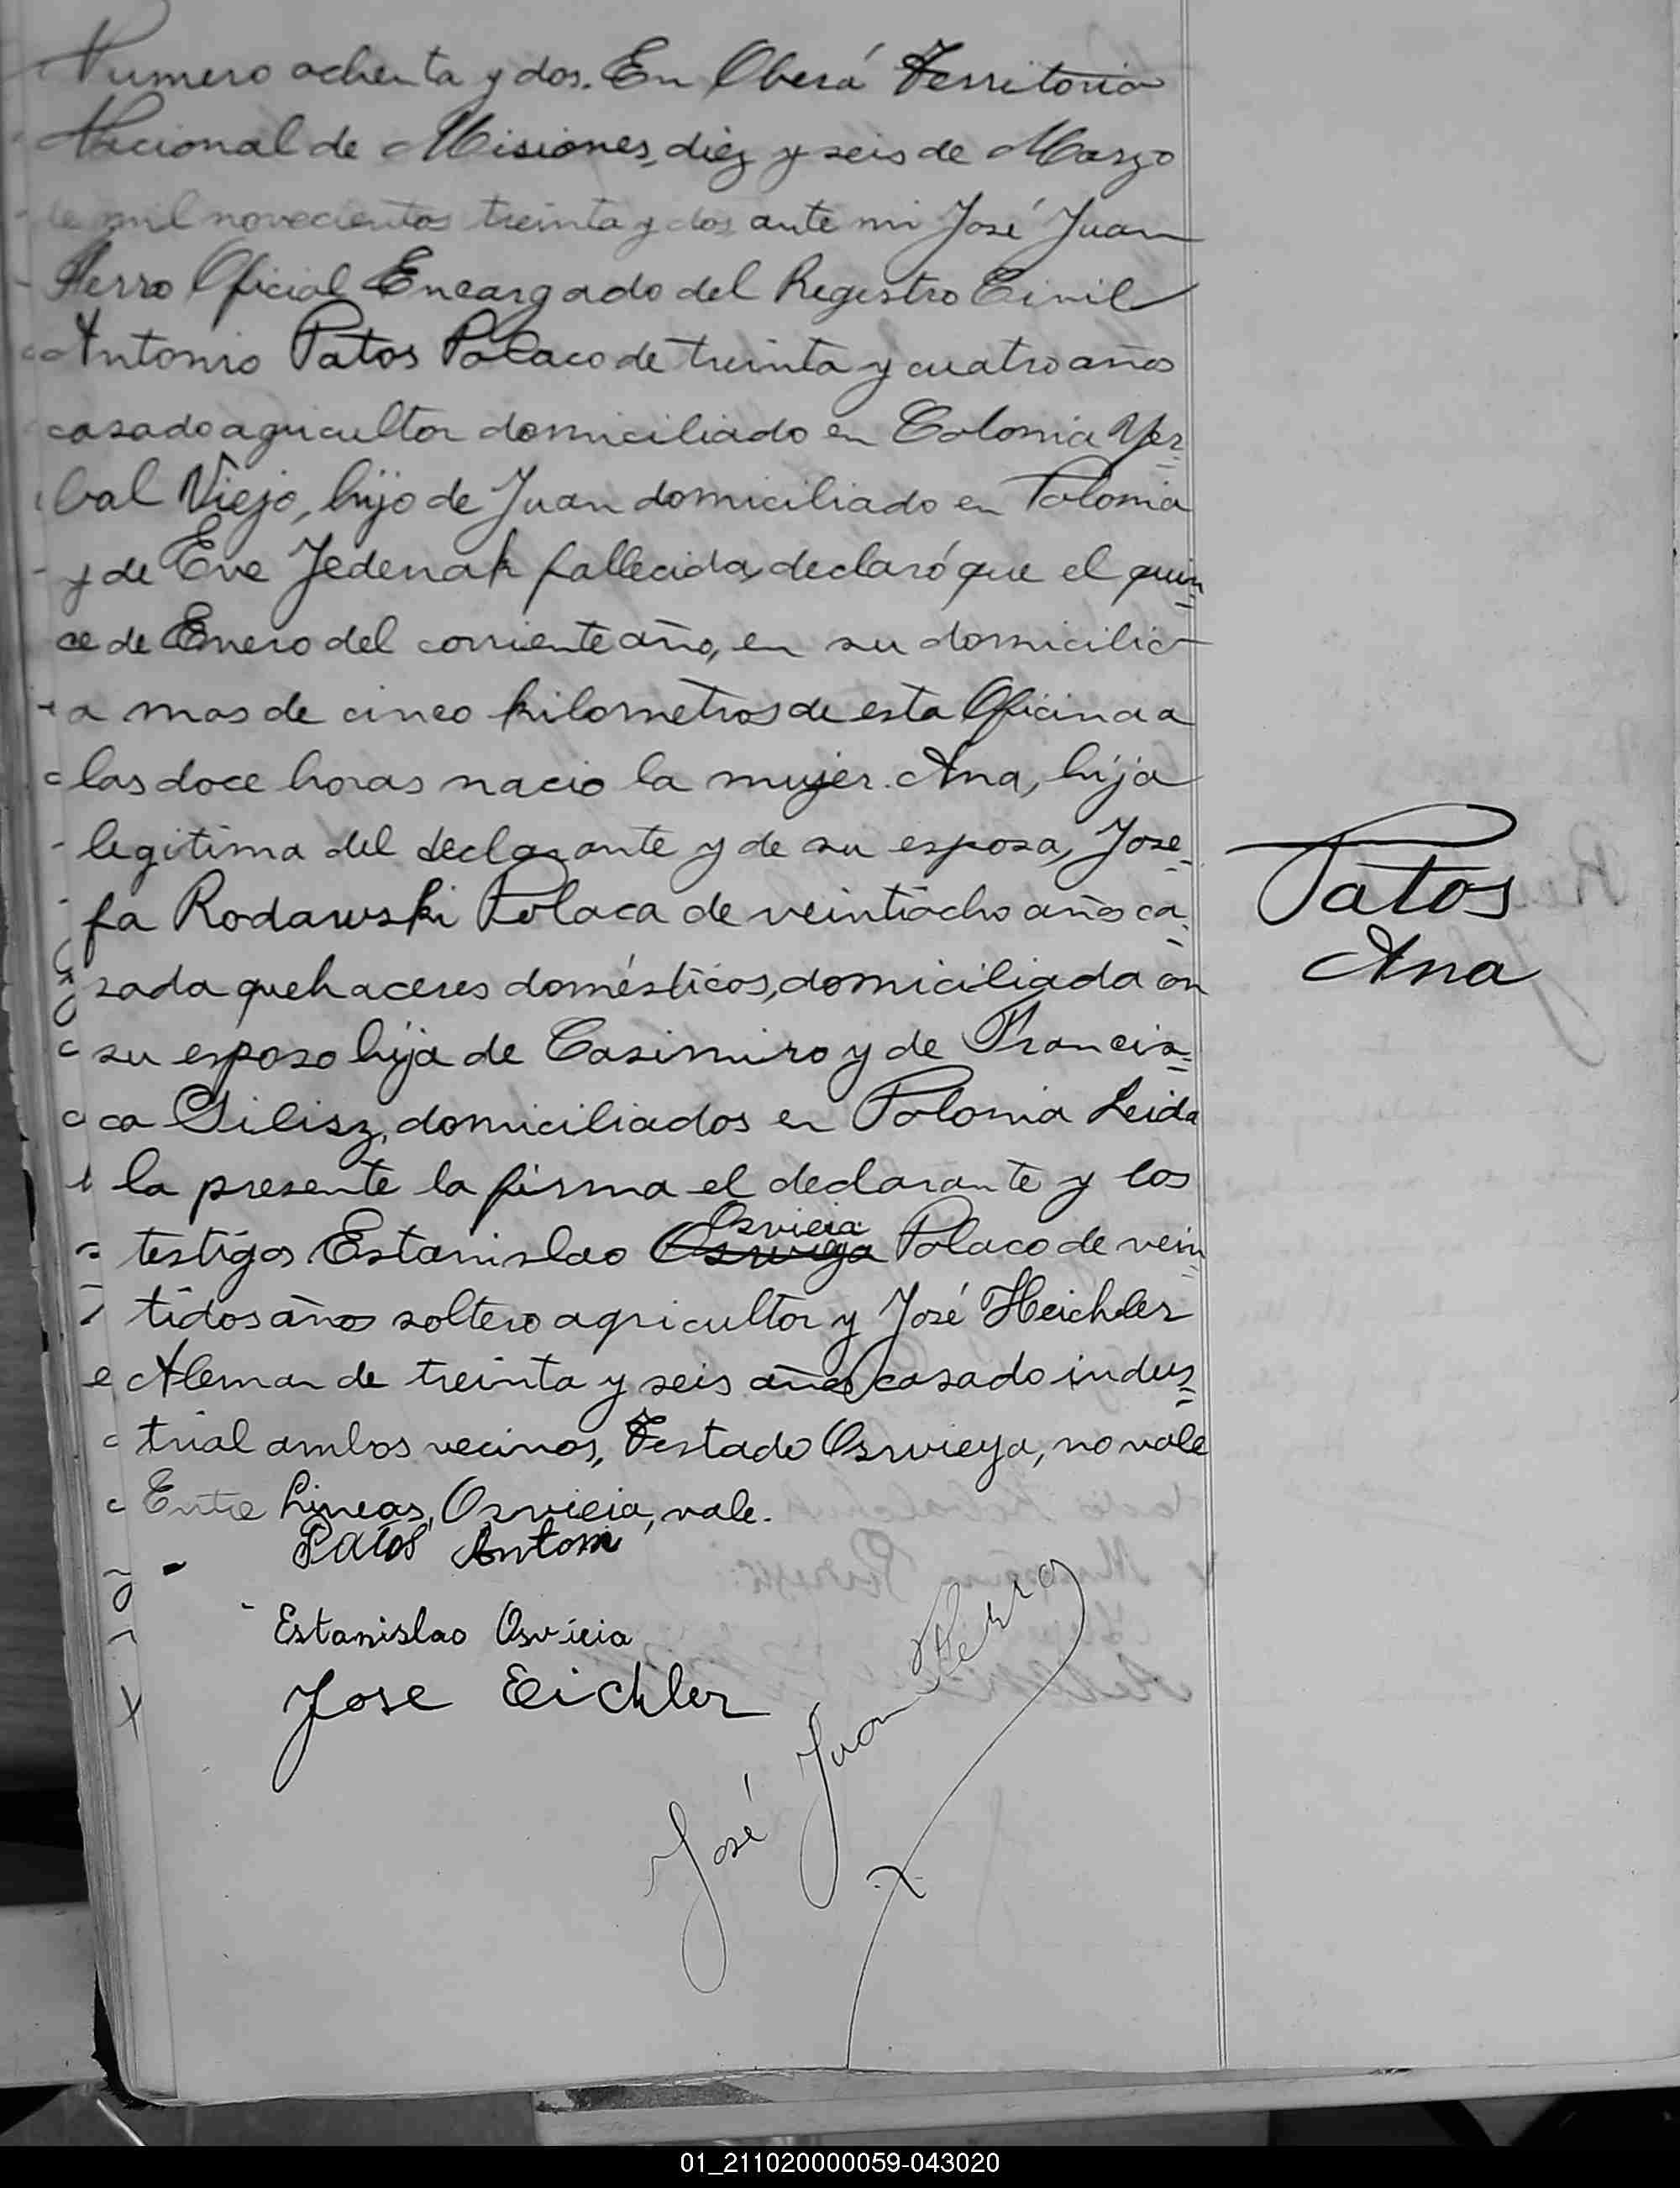 Numero ochenta y dos. En Oberá Territorio
Nacional de Misiones, diez y seis de Marzo
de mil novecientos treinta y dos ante mi José Juan
Herro Oficial Encargado del Registro Civil
Antonio Patos Polaco de treinta y cuatro años
casado agricultor domiciliado en Colonia Yer=
bal Viejo, hijo de Juan domiciliado en Polonia
y de Eve Jedenak fallecida, declaró que el quin=
ce de Enero del corriente año, en su domicilio
a mas de cinco kilometros de esta Oficina a
las doce horas nacio la mujer Ana, hija
legitima del declarante y de su esposa, Jose=
fa Rodawski Polaca de veintiocho años ca=
sada quehaceres domésticos, domiciliada con
su esposo hija de Casimiro y de Francis=
ca Gilisz, domiciliados en Polonia Leida
la presente la firma el declarante y los
Osvieia
testigos Estanislao Polaco de vein=
tidos años soltero agricultor y José Heichler
Aleman de treinta y seis años casado indus=
trial ambos vecinos, Testado Oswieya, no vale
Entre lineas, Osvieia, vale.
Patos Antoni
Estanislao Osvieia
Jose Eichler
José Juan Herro
Patos
Ana
01_211020000059-043020